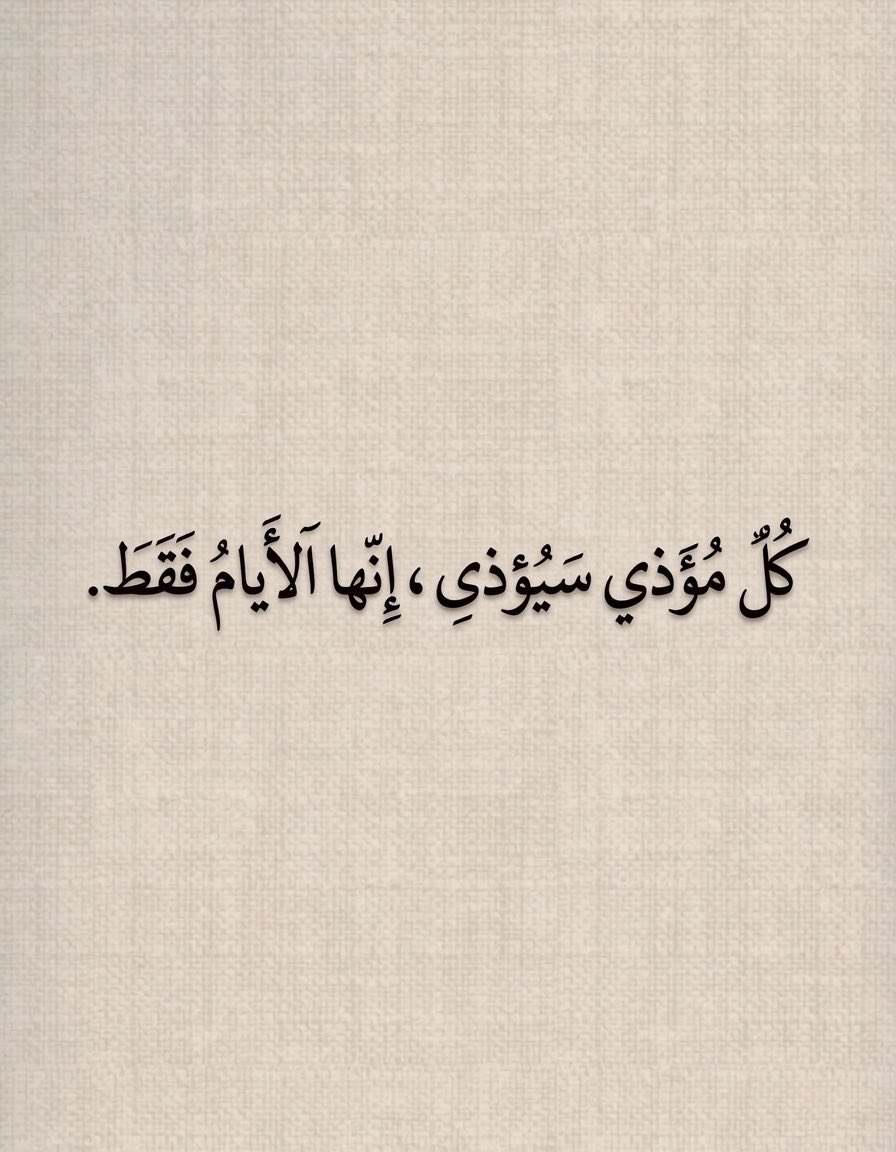 كُلٌّ مُؤَذي سَيُؤذىِ، إِنّها اَلأَيامُ فَقَطَ.